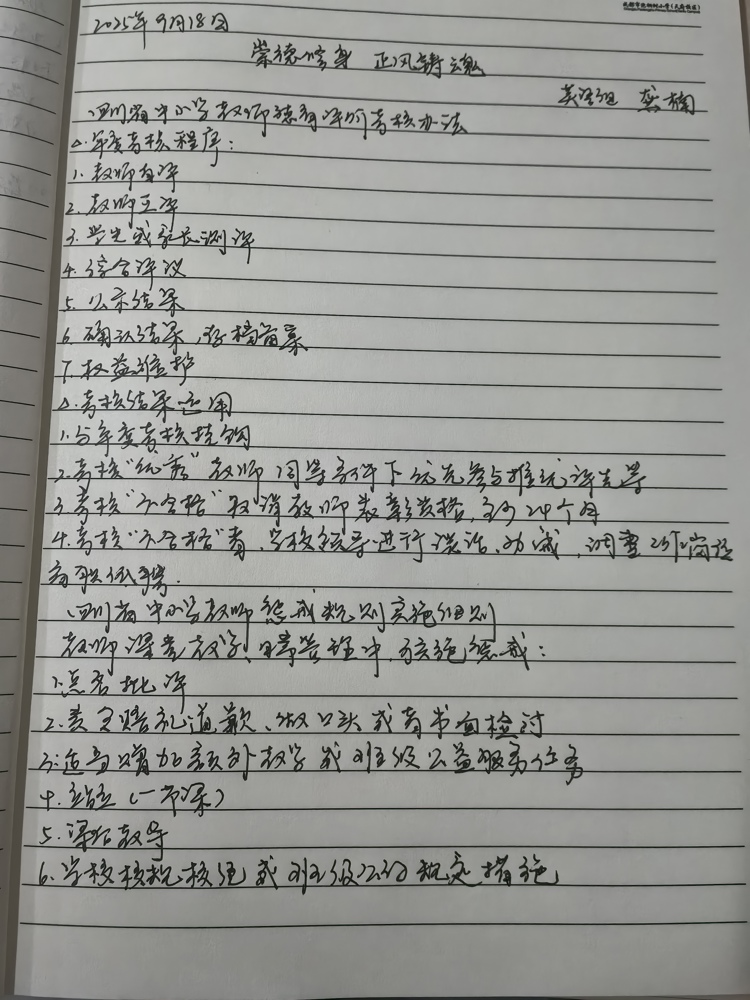 2025年9月18日
崇德修身 正风铸魂
英语组 龚楠
四川省中小学教师德育评价考核办法
△年度考核程序：
1.教师自评
2.教师互评
3.学生或家长测评
4.综合评议
5.公示结果
6.确认结果，存档备案
7.权益维护
△考核结果运用
1.与年度考核挂钩
2.考核“优秀”教师同等条件下优先参与推优评先等
3.考核“不合格”取消教师表彰资格，至少24个月
4.考核“不合格”者，学校领导进行谈话、劝诫，调整工作岗位
或职低聘.
四川省中小学教师惩戒规则实施细则
教师课堂教学、日常管理中，可实施惩戒：
1.点名批评
2.责令赔礼道歉、做口头或者书面检讨
3.适当增加额外教学或班级公益服务任务
4.站立（一节课）
5.课后教导
6.学校校规校纪或班级公约规定措施